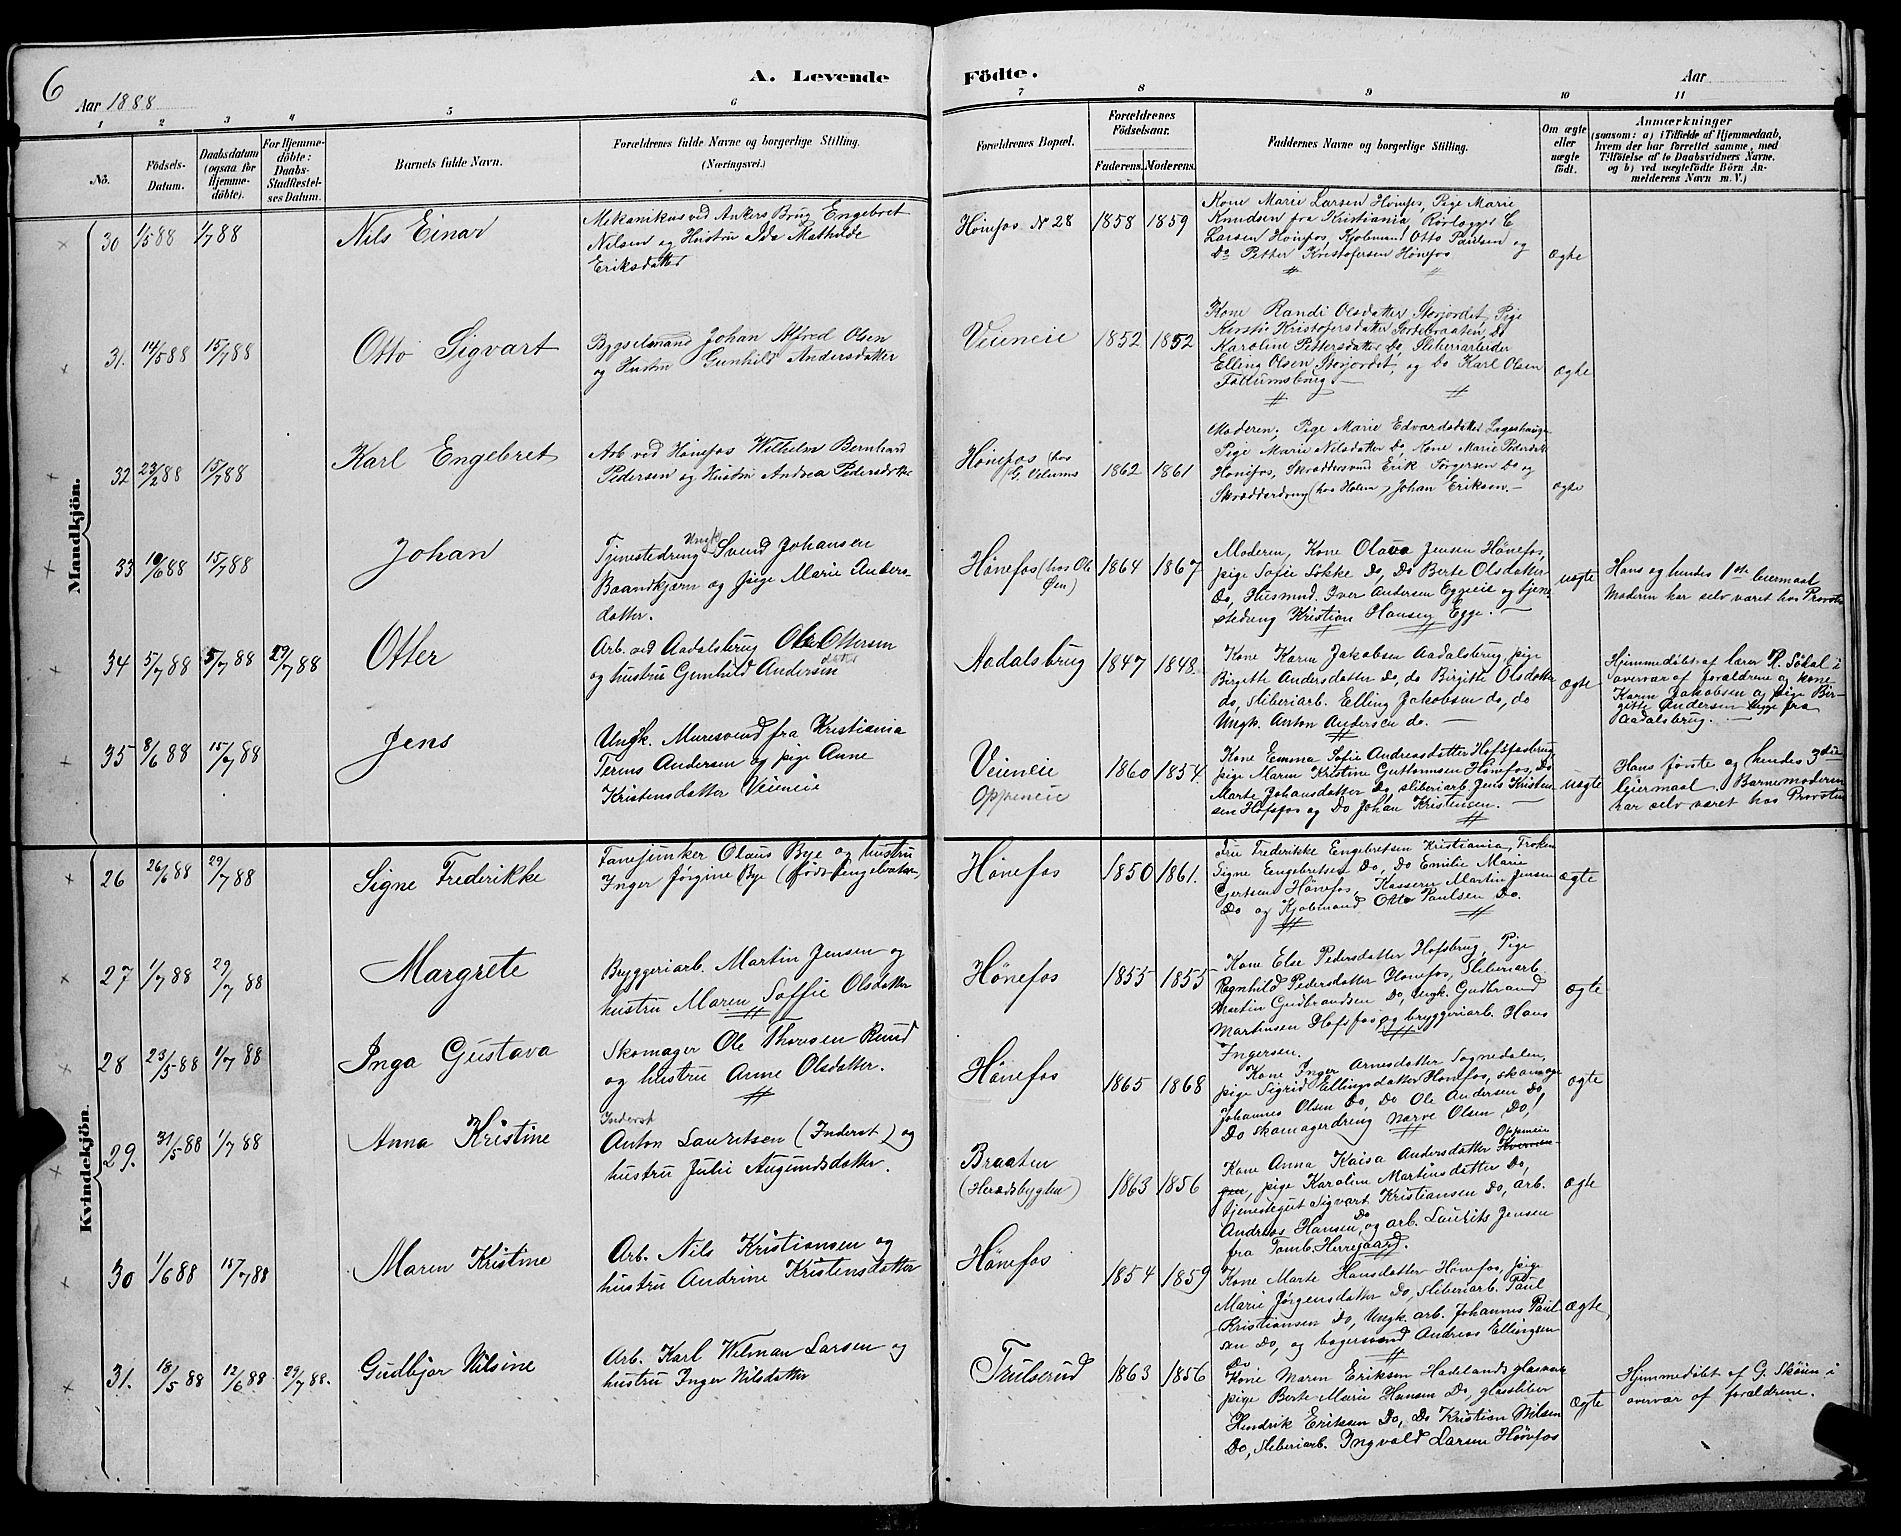 6
A. Levende
Födte.
Aar 1888
Aar
1 2 3 4 5 6 7 8 9 10 11
No.
Födsels-
Datum.
Daabsdatum
(ogsaa for
Hjemme-
döbte).
For Hjemme-
döbte:
Daabs-
Stadfæstel-
ses Datum.
Barnets fulde Navn.
Forældrenes fulde Navne og borgerlige Stilling.
(Næringsvei.)
Forældrenes Bopæl.
Forældrenes
Födselsaar.
Faderens. Moderens.
Faddernes Navne og borgerlige Stilling.
Om ægte
eller
uægte
födt.
Anmærkninger
(saasom: a) i Tilfælde af Hjemmedaab,
hvem der har forrettet samme, med
Tilföielse af to Daabsvidners Navne.
og b) ved uægtefödte Börn An-
melderens Navn m. V.)
Mandkjön.
30 1/5 88 1/7 88
Nils Einar
Mekanikus ved Ankers Brug Engebret
Nilsen og Hustru Ida Mathilde
Eriksdatter
Hönefos No 28
1858 1859
Kone Marie Larsen Hönefos, Pige Marie
Knudsen fra Kristiania, Rörlægger C
Larsen Hönefos, Kjöbmand Otto Paulsen og
Do Petter Kristofersen Hönefos
Ægte
31. 14/5 88 15/7 88
Otto Sigvart
Bygselmand Johan Alfred Olsen
og Hustru Gunhild Andersdatter
Veieneie
1852 1852
Kone Randi Olsdatter Storjordet, Pige
Kirsti Kristofersdatter Dortebraaten, Do
Karoline Pettersdatter Do, Sliberiarbeider
Elling Olsen Storjordet, og Do Karl Olsen
Follumsbrug.
Ægte
32 23/2 88 15/7 88
Karl Engebret
Arb ved Hönefos Wilhelm Bernhard
Pedersen og Hustru Andrea Pedersdatter
Hönefos (hos
G. Velums
1862 1861
Moderen, Pige Marie Edvardsdatter
Pige Marie Nilsdatter Do, Kone Marie Pedersdtr
Hönefos, Skræddersvend Erik Jörgersen Do og
Skrædderdreng (hos Holen) Johan Eriksen.
ægte
33 10/6 88 15/7 88
Johan
Ungk
Tjenestedreng Svend Johansen
Baandkjærn og pige Marie Anders-
datter.
Hönefos (hos Ole
Öen)
1864 1867
Moderen, Kone Olava Jensen Hönefos,
pige Sofie Lökke Do, Do Berte Olsdatter
Do, Husmnd. Iver Andersen Eggeeie og tjene-
stedreng Kristian Hansen Egge.
uægte
Hans og hendes 1ste leiermaal
Moderen har selv været hos Provsten
34 5/7 88 5/7 88 29/7 88
Otter
Arb. ved Aadalsbrug Ole Ottersen
og hustru Gunhild Andersen
datter
Aadalsbrug
1847 1848.
Kone Karen Jakobsen Aadalsbrug, pige
Birgitte Andersdatter Do, do Birgitte Olsdatter
do, Sliberiarb. Elling Jakobsen do, do
Ungk. Anton Andersen do.
ægte
Hjemmedöbt af lærer R. Sökal i
overvær af forældrene og kone
Karen Jakobsen og pige Bir-
gitte Andersen begge fra
Aadalsbrug.
35 8/6 88 15/7 88
Jens
Ungk. Muresvend fra Kristiania
Terens Andersen og pige Anne
Kristensdatter Veieneie
Veieneie
Oppeneie
1860 1854.
Kone Emma Sofie Andreasdatter Hofsfosbrug,
pige Maren Kristine Guttormsen Hönefos, Do
Marte Johansdatter Do, sliberiarb. Jens Kristen-
sen Hofsfos og Do Johan Kristensen.
uægte
Hans förste og hendes 3die
leiermaal. Barnemoderen
har selv været hos Provsten
Kvindekjön.
26 26/6 88 29/7 88
Signe Frederikke
Fanejunker Olaus Bye og hustru
Inger Jörgine Bye (födt Engebretsen)
Hönefos
1850 1861.
Fru Frederikke Engebretsen Kristiania, Fröken
Signe Engebretsen Do, Do Emilie Marie
Gjertsen Hönefos, Kasserer Martin Jensen
Do og Kjöbmand Otto Paulsen Do.
ægte
27 1/7 88 29/7 88
Margrete
Bryggeriarb. Martin Jensen og
hustru Maren Soffie Olsdatter
Hönefos
1855 1855
Kone Else Pedersdatter Hofsbrug, Pige
Ragnhild Pedersdatter Hönefos, Sliberiarb.
Martin Gudbrandsen Do, Ungk. Gudbrand
Martinsen Hofsfos og bryggeriarb. Hans
Ingersen.
ægte
28 23/5 88 1/7 88
Inga Gustava
Skomager Ole Thoresen Rund
og hustru Anne Olsdatter.
Hönefos
1865 1868
Kone Inger Arnesdatter Sognedalen,
pige Sigrid Ellingsdatter Hönefos, skomager
Johannes Olsen Do, Do Ole Andersen Do,
Do skomagerdreng Narve Olsen Do,
ægte
29. 31/5 88 1/7 88
Anna Kristine
Inderst
Anton Lauritsen (Inderst) og
hustru Julie Augundsdatter.
Braaten
(Heradsbygden)
1863 1856
Oppeneie
Kone Anna Kaisa Andersdatter
pige Karoline Martinsdatter Do,
Tjenestegut Sigvart Kristiansen Do, arb.
Andreas Hansen Do, og arb. Laurits Jensen
fra Tomb. Herregaard.
ægte
30 1/6 88 15/7 88
Maren Kristine
Arb. Nils Kristiansen og
hustru Andrine Kristensdatter
Hönefos
1854 1859
Kone Marte Hansdatter Hönefos, pige
Marie Jörgensdatter Do, Sliberiarb. Paul
Kristiansen Do, Ungk. arb. Johannes Paul-
sen Do, og bagersvend Andreas Ellingsen
Do
Ægte,
31. 18/5 88 12/6 88 29/7 88.
Gudbjor Nilsine
Arb. Karl Wilman Larsen og
hustru Inger Nilsdatter
Trulserud
1863 1856
Kone Maren Eriksen Hadelands glasværk
pige Berte Marie Hansen Do, glassliber
Hendrik Eriksen Do, Do Kristian Nilsen
Do, Sliberiarb. Ingvald Larsen Hönefos
Ægte
Hjemmedöbt af G. Sköien i
overvær af forældrene.